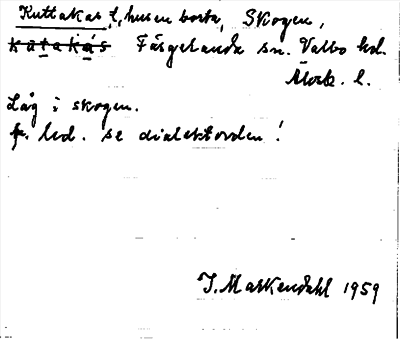 Kuttakas t, husen borta, Skogen,
kutakás Färgelanda sn. Valbo hd.
Älvsb. l.
Låg i skogen.
fr. led. se dialektorden!
I. Markendahl 1959